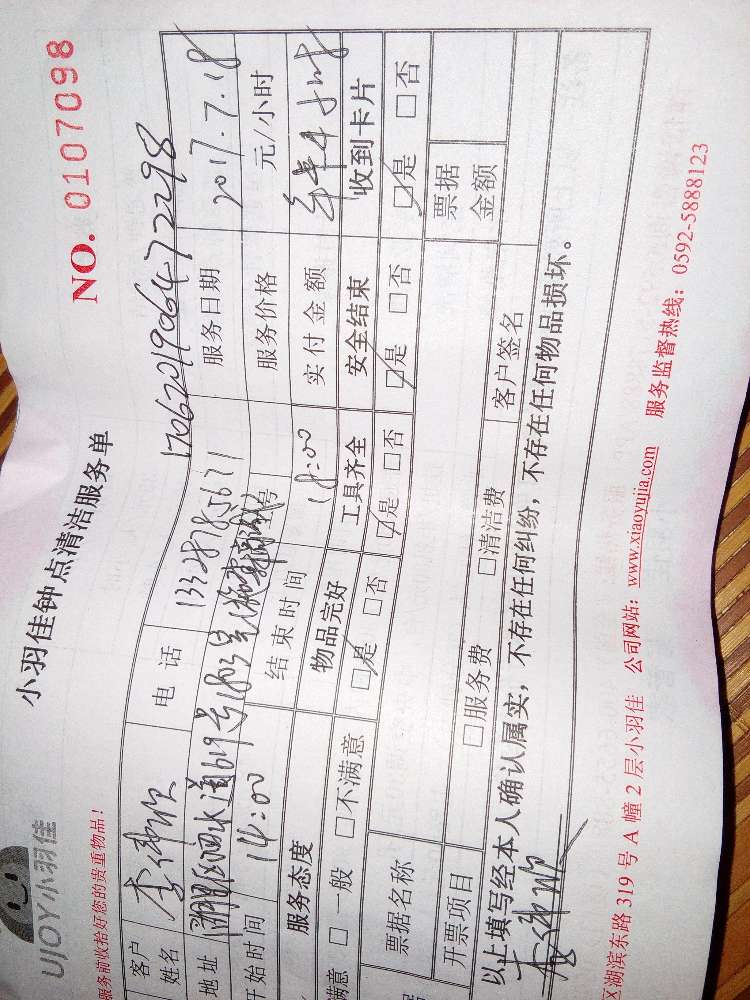 UJOY小羽佳
小羽佳钟点清洁服务单
NO. 0107098
服务前收拾好您的贵重物品!
1706201906472298
客户姓名 电话 服务日期 2017.7.18
地址 619号 服务价格 元/小时
开始时间 14:00 结束时间 18:00 实付金额
服务态度 物品完好 工具齐全 安全结束 收到卡片
满意 □ 一般 □不满意 □是 □否 □是 □否 □是 □否 □是 □否
票据名称 票据金额
开票项目 □服务费 □清洁费 客户签名
以上填写经本人确认属实,不存在任何纠纷,不存在任何物品损坏。
区湖滨东路 319 号 A 幢 2 层小羽佳 公司网站: www.xiaoyujia.com 服务监督热线: 0592-5888123